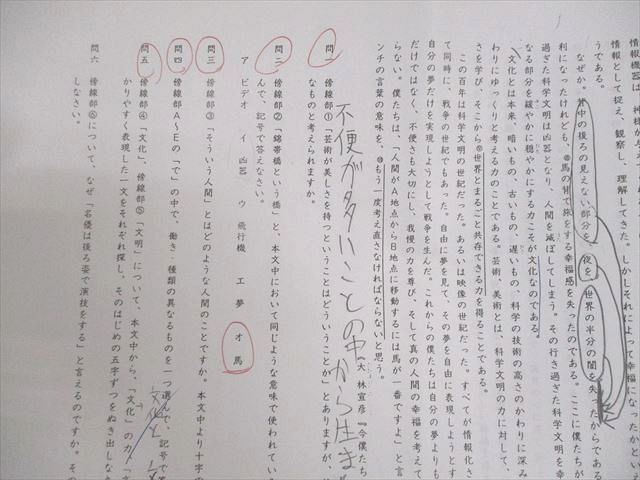 情報機は、神様が与え
情報として捉え、観察し、理解してきた。しかしそれによって幸福になったかといえ
うである。
なぜか。背中の後ろの見えない部分を、夜を、世界の半分の闇を失ったからである。
利になったけれども、馬の背で旅をする幸福感を失ったのである。ここに僕たちが
過ぎた科学文明は凶器となり、人間を滅ぼしてしまう。その行き過ぎた科学文明を幸
なる部分を緩やかに穏やかにする力こそが文化なのである。
文化とは本来、暗いもの、古いもの、遅いもの、科学の技術の高さのかわりに深み
わりにゆっくりと考える力のことである。芸術、美術とは、科学文明の力に対して、
さを学び、そこから⑨世界とまるごと共存できる力を得ることである。
この百年は科学文明の世紀だった。あるいは映像の世紀だった。すべてが情報化さ
て同時に、戦争の世紀でもあった。自由に夢を見て、その夢を自由に表現しようとす
自分の夢だけを実現しようとして戦争を生んだ。これからの僕たちは自分の夢よりも
だけではなく、不便さも大切にし、我慢の力を尊び、そして真の人間の幸福を考えて
らない。僕たちは、「人間がA地点からB地点に移動するには馬が一番ですよ」と言
ンチの言葉の意味を、⑩もう一度考え直さなければならないと思う。
大林宣彦『今僕たち
不便が多いことの中から生ま
問一　傍線部①「芸術が美しさを持つということはどういうことか」とありますが、
なものと考えられますか。
問二　傍線部②「錦帯橋という橋」と、本文中において同じような意味で使われてい
んで、記号で答えなさい。
ア　ビデオ　イ　凶器　ウ　飛行機　エ　夢　オ　馬
問三　傍線部③「そういう人間」とはどのような人間のことですか。本文中より十字の
問四　傍線部A～Eの「で」の中で、働き・種類の異なるものを一つ選んで、記号で答
問五　傍線部④「文化」、傍線部⑤「文明」について、本文中から、「文化」の力、「文
かりやすく表現した一文をそれぞれ探し、そのはじめの五字ずつをぬき出しな
文化と
問六　傍線部⑥について、なぜ「名優は後ろ姿で演技をする」と言えるのですか。その
しなさい。